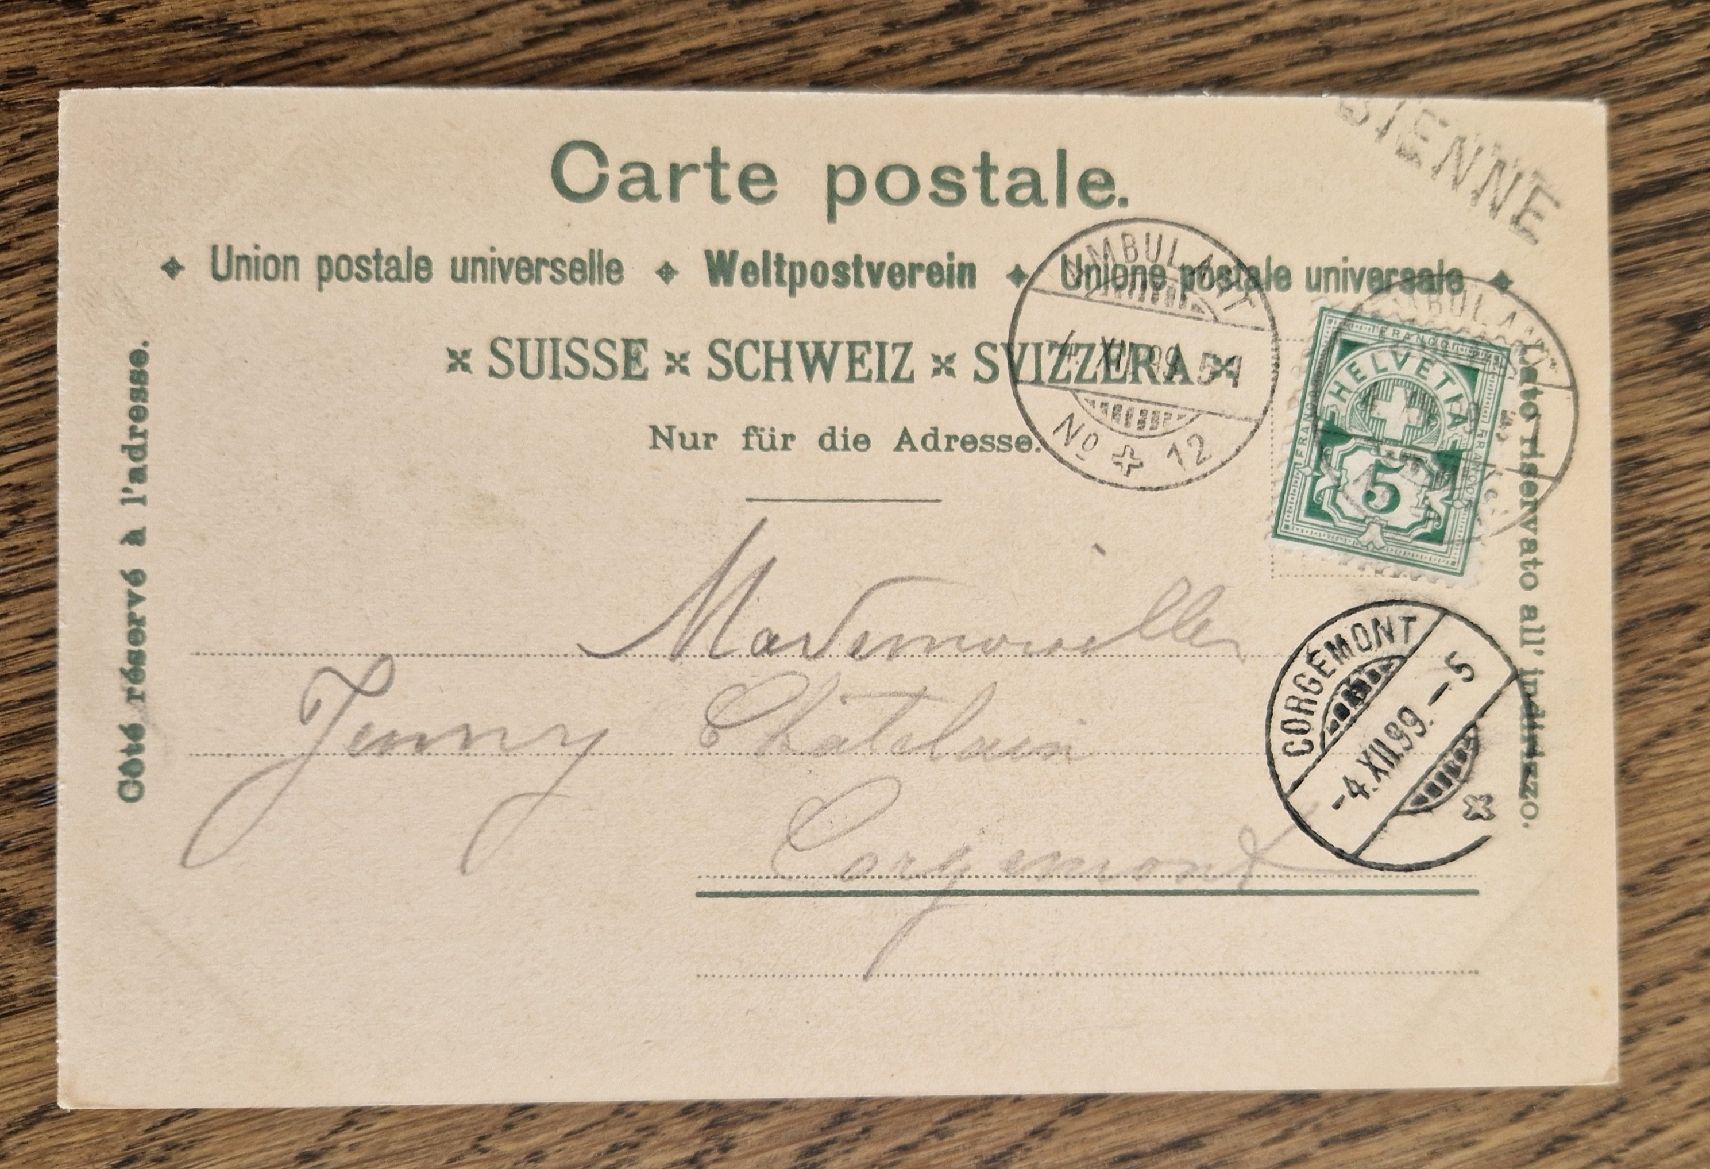 BIENNE
Carte postale.
Union postale universelle Weltpostverein Unione postale universale
SUISSE SCHWEIZ SVIZZERA
Nur für die Adresse.
Côté réservé à l'adresse.
Lato riservato all' indirizzo.
AMBULANT
4 XII 99
No 12
AMBULANT
FRANCO
HELVETIA
5
Mademoiselle
Jenny Châtelain
Corgemont
CORGÉMONT
-4.XII.99.-5